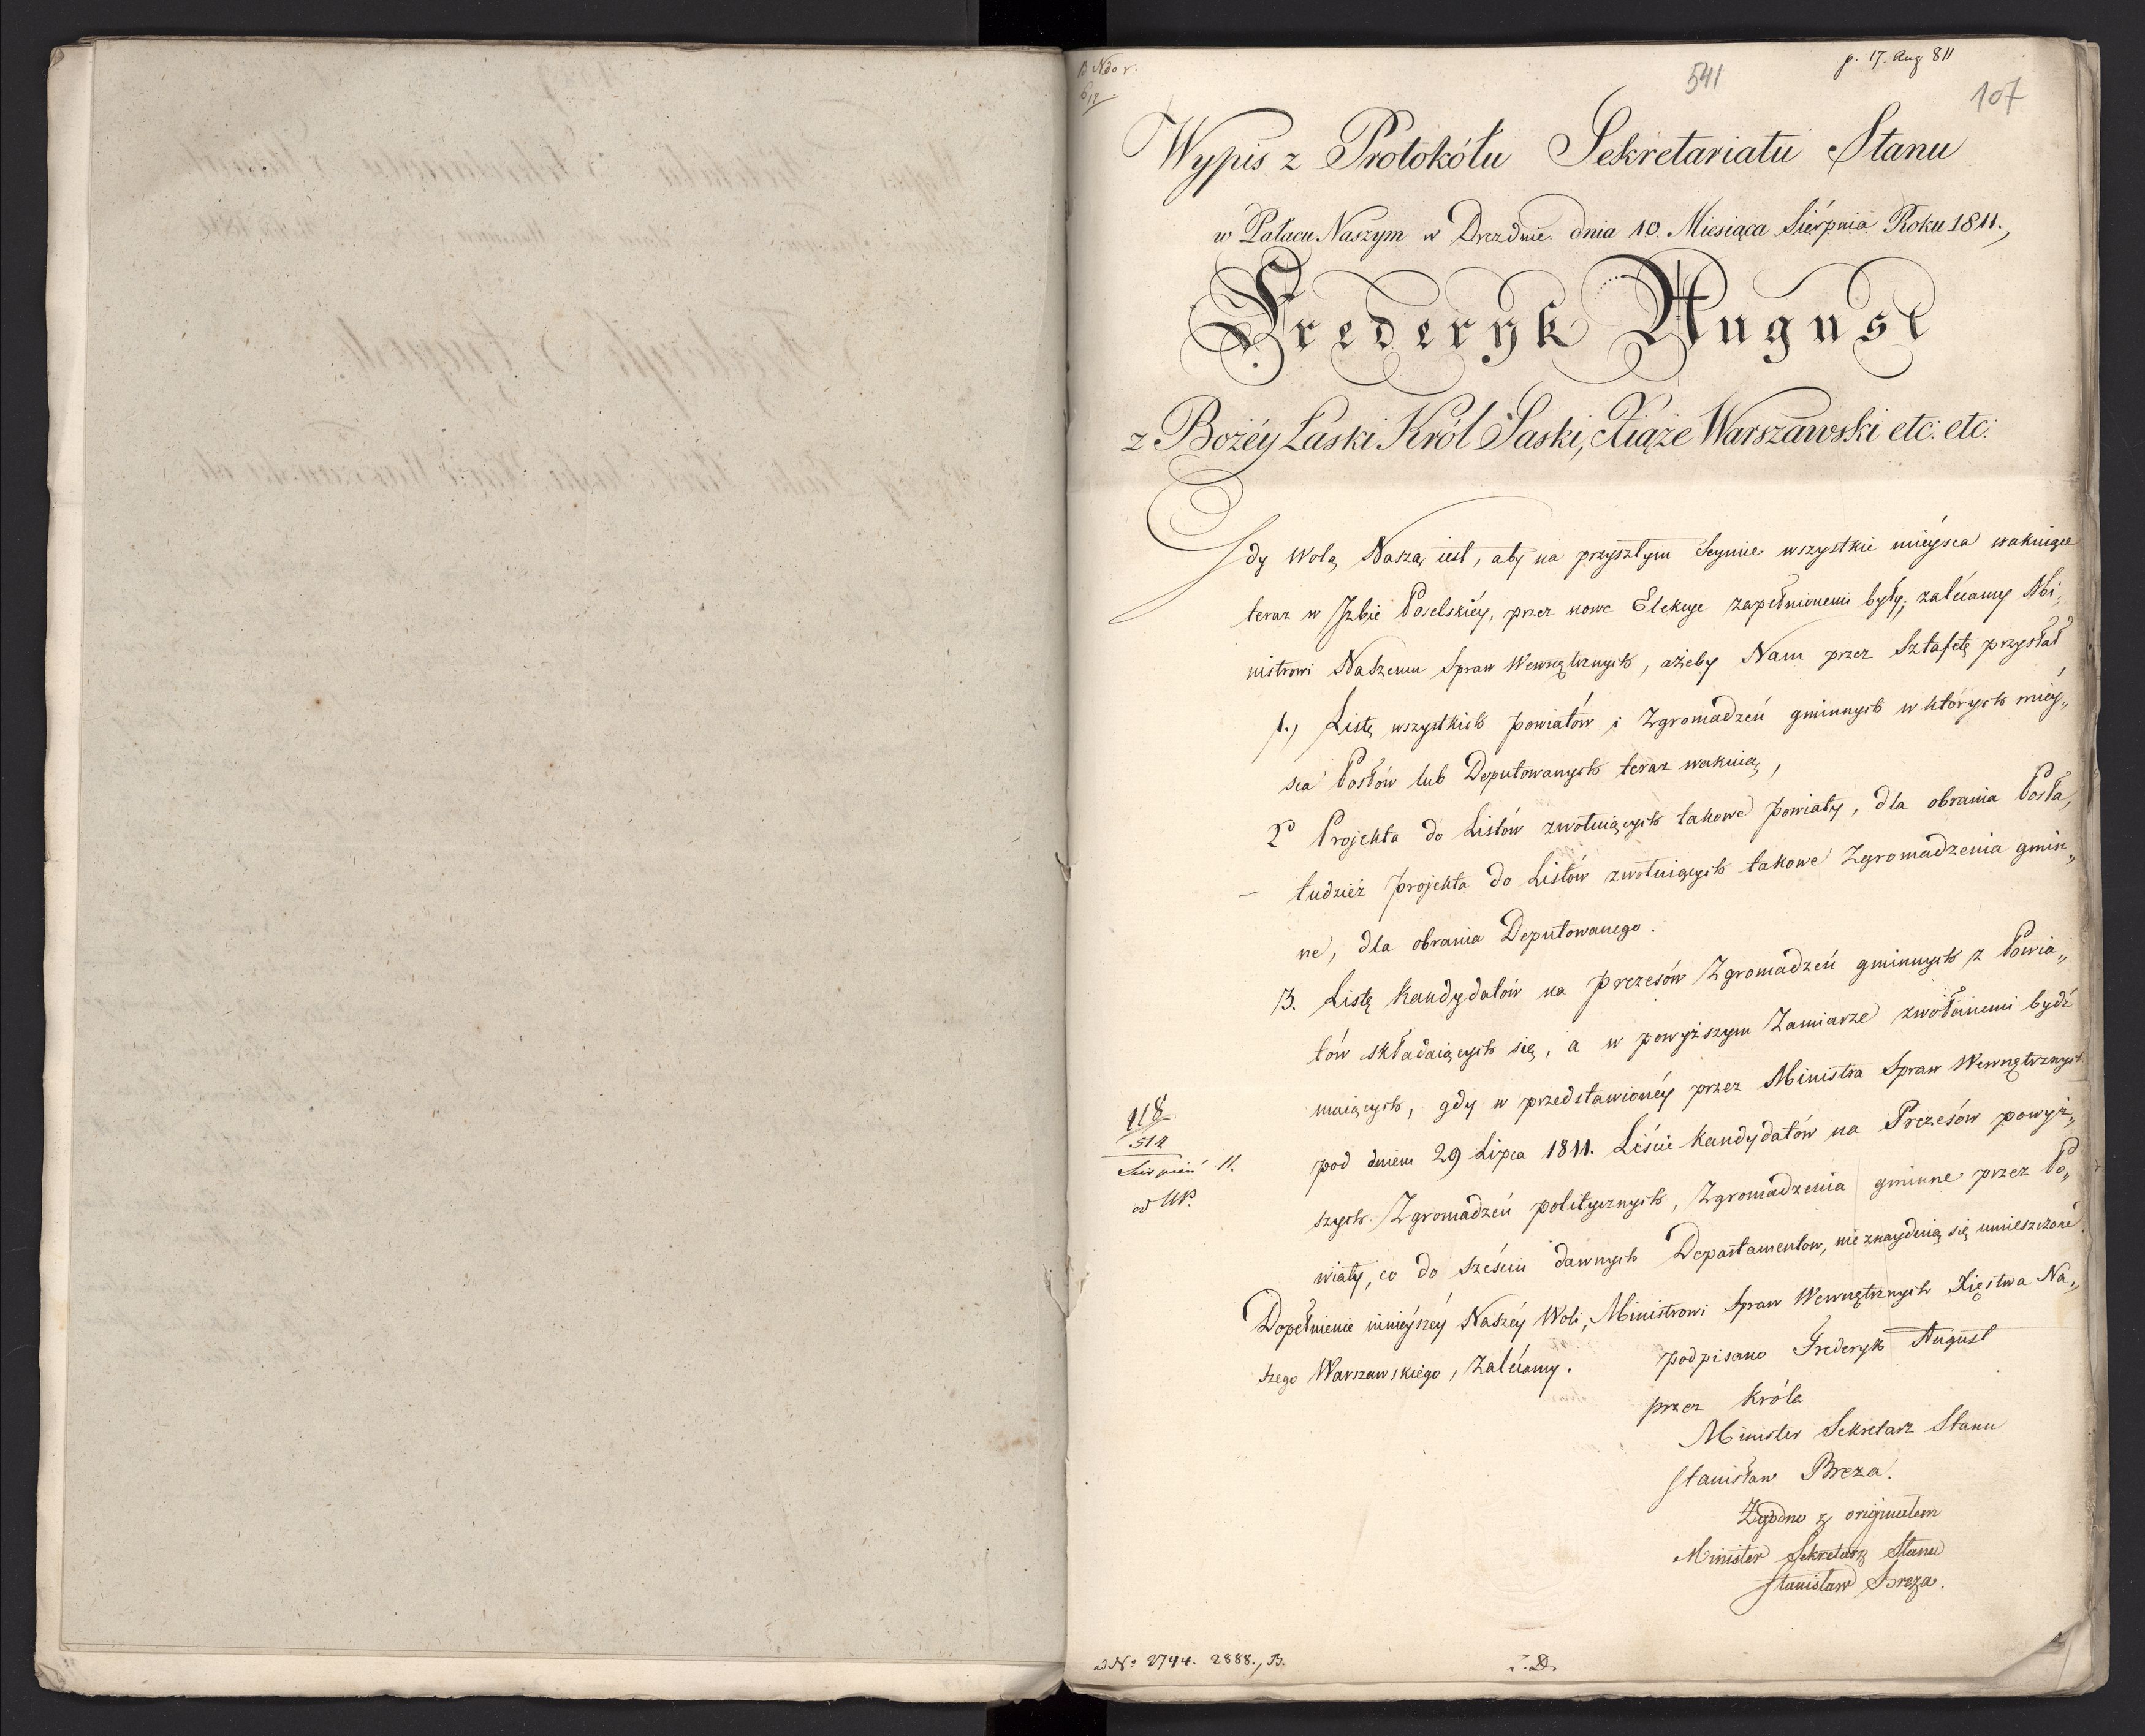 p. 17. Aug 811
541
107
Wypis z Protokółu Sekretariatu Stanu
w Pałacu Naszym w Dreźnie dnia 10. Miesiąca Sierpnia Roku 1811.,
Frederyk August
z Bożéy Łaski Król Saski, Xiąże Warszawski etc. etc.
Gdy Wolą Naszą iest, aby na przyszłym Seymie wszystkie miéysca wakuiące
teraz w Izbie Poselskiéy, przez nowe Elekcye zapełnionemi były; zalécamy Mi„
nistrowi Naszemu Spraw Wewnętrznych, ażeby Nam przez Sztafetę przysłał
1., Listę wszystkich powiatów i Zgromadzeń gminnych w których miéy„
sca Posłów lub Deputowanych teraz wakuią,
2° Projekta do Listów zwołuiących takowe Powiaty, dla obrania Posła,
tudzież projekta do Listów zwołuiących takowe Zgromadzenia gmin„
ne, dla obrania Deputowanego.
3. Listę Kandydatów na Prezesów Zgromadzeń gminnych z Powia„
tów składaiących się, a w powyższym Zamiarze zwołanemi bydź
maiących, gdy w przedstawionéy przez Ministra Spraw Wewnętrznych
pod dniem 29 Lipca 1811. Liście Kandydatów na Prezesów powyż„
szych Zgromadzeń politycznych, Zgromadzenia gminne przez Po„
wiaty, co do sześciu dawnych Departamentow, nie znayduią się umieszczone
Dopełnienie ninieyszéy Naszéy Woli, Ministrowi Spraw Wewnętrznych Xięstwa Na„
szego Warszawskiego, Zalécamy.
podpisano Frederyk August
przez Króla
Minister Sekretarz Stanu
Stanisław Breza.
Zgodno z originałem
Minister Sekretarz Stanu
Stanisław Breza.
118
514
Sierpień 11.
ad N° 2744. 2888., B.